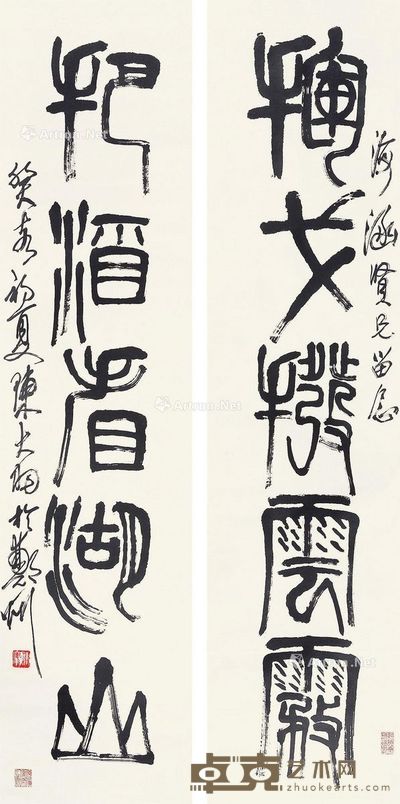 海涵贤兄留念
揮戈撥雲霧
把酒看湖山
癸亥初夏陳大羽於鄭州
Artron.Net
卓克艺术网
www.zhuokearts.com